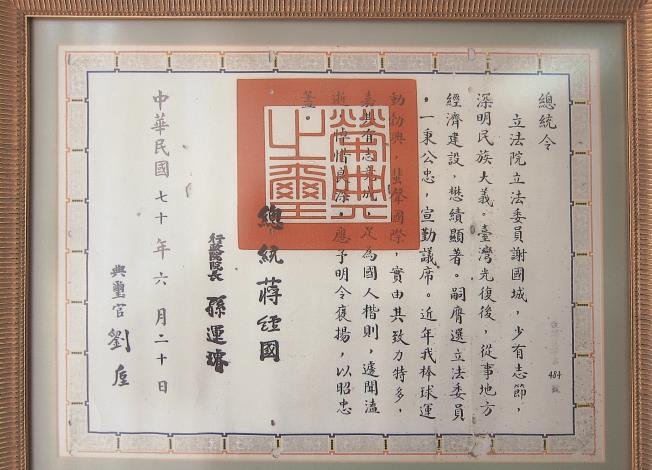 總統令
立法院立法委員謝國城，少有志節，
深明民族大義。臺灣光復後，從事地方
經濟建設，懋績顯著。嗣膺選立法委員
，一秉公忠，宣勤議席。近年我棒球運
動勃興，蜚聲國際，實由其致力特多，
嘉其有志竟成，足為國人楷則，遽聞溘
逝，悼惜良深，應予明令褒揚，以昭忠
藎。
榮典之璽
總統蔣經國
行政院院長 孫運璿
中華民國七十年六月二十日
典璽官 劉垕
484